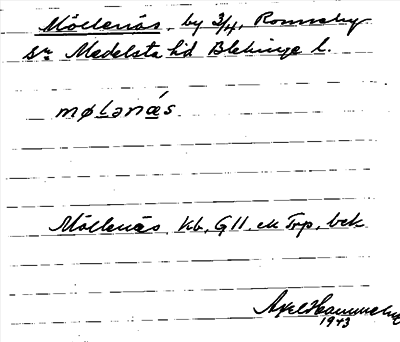 Möllenäs, by 3/4, Ronneby
sn Medelsta hd Blekinge l.
møLənæ´s
Möllenäs Kb, GII, ek Trp, bek
Axel
1943